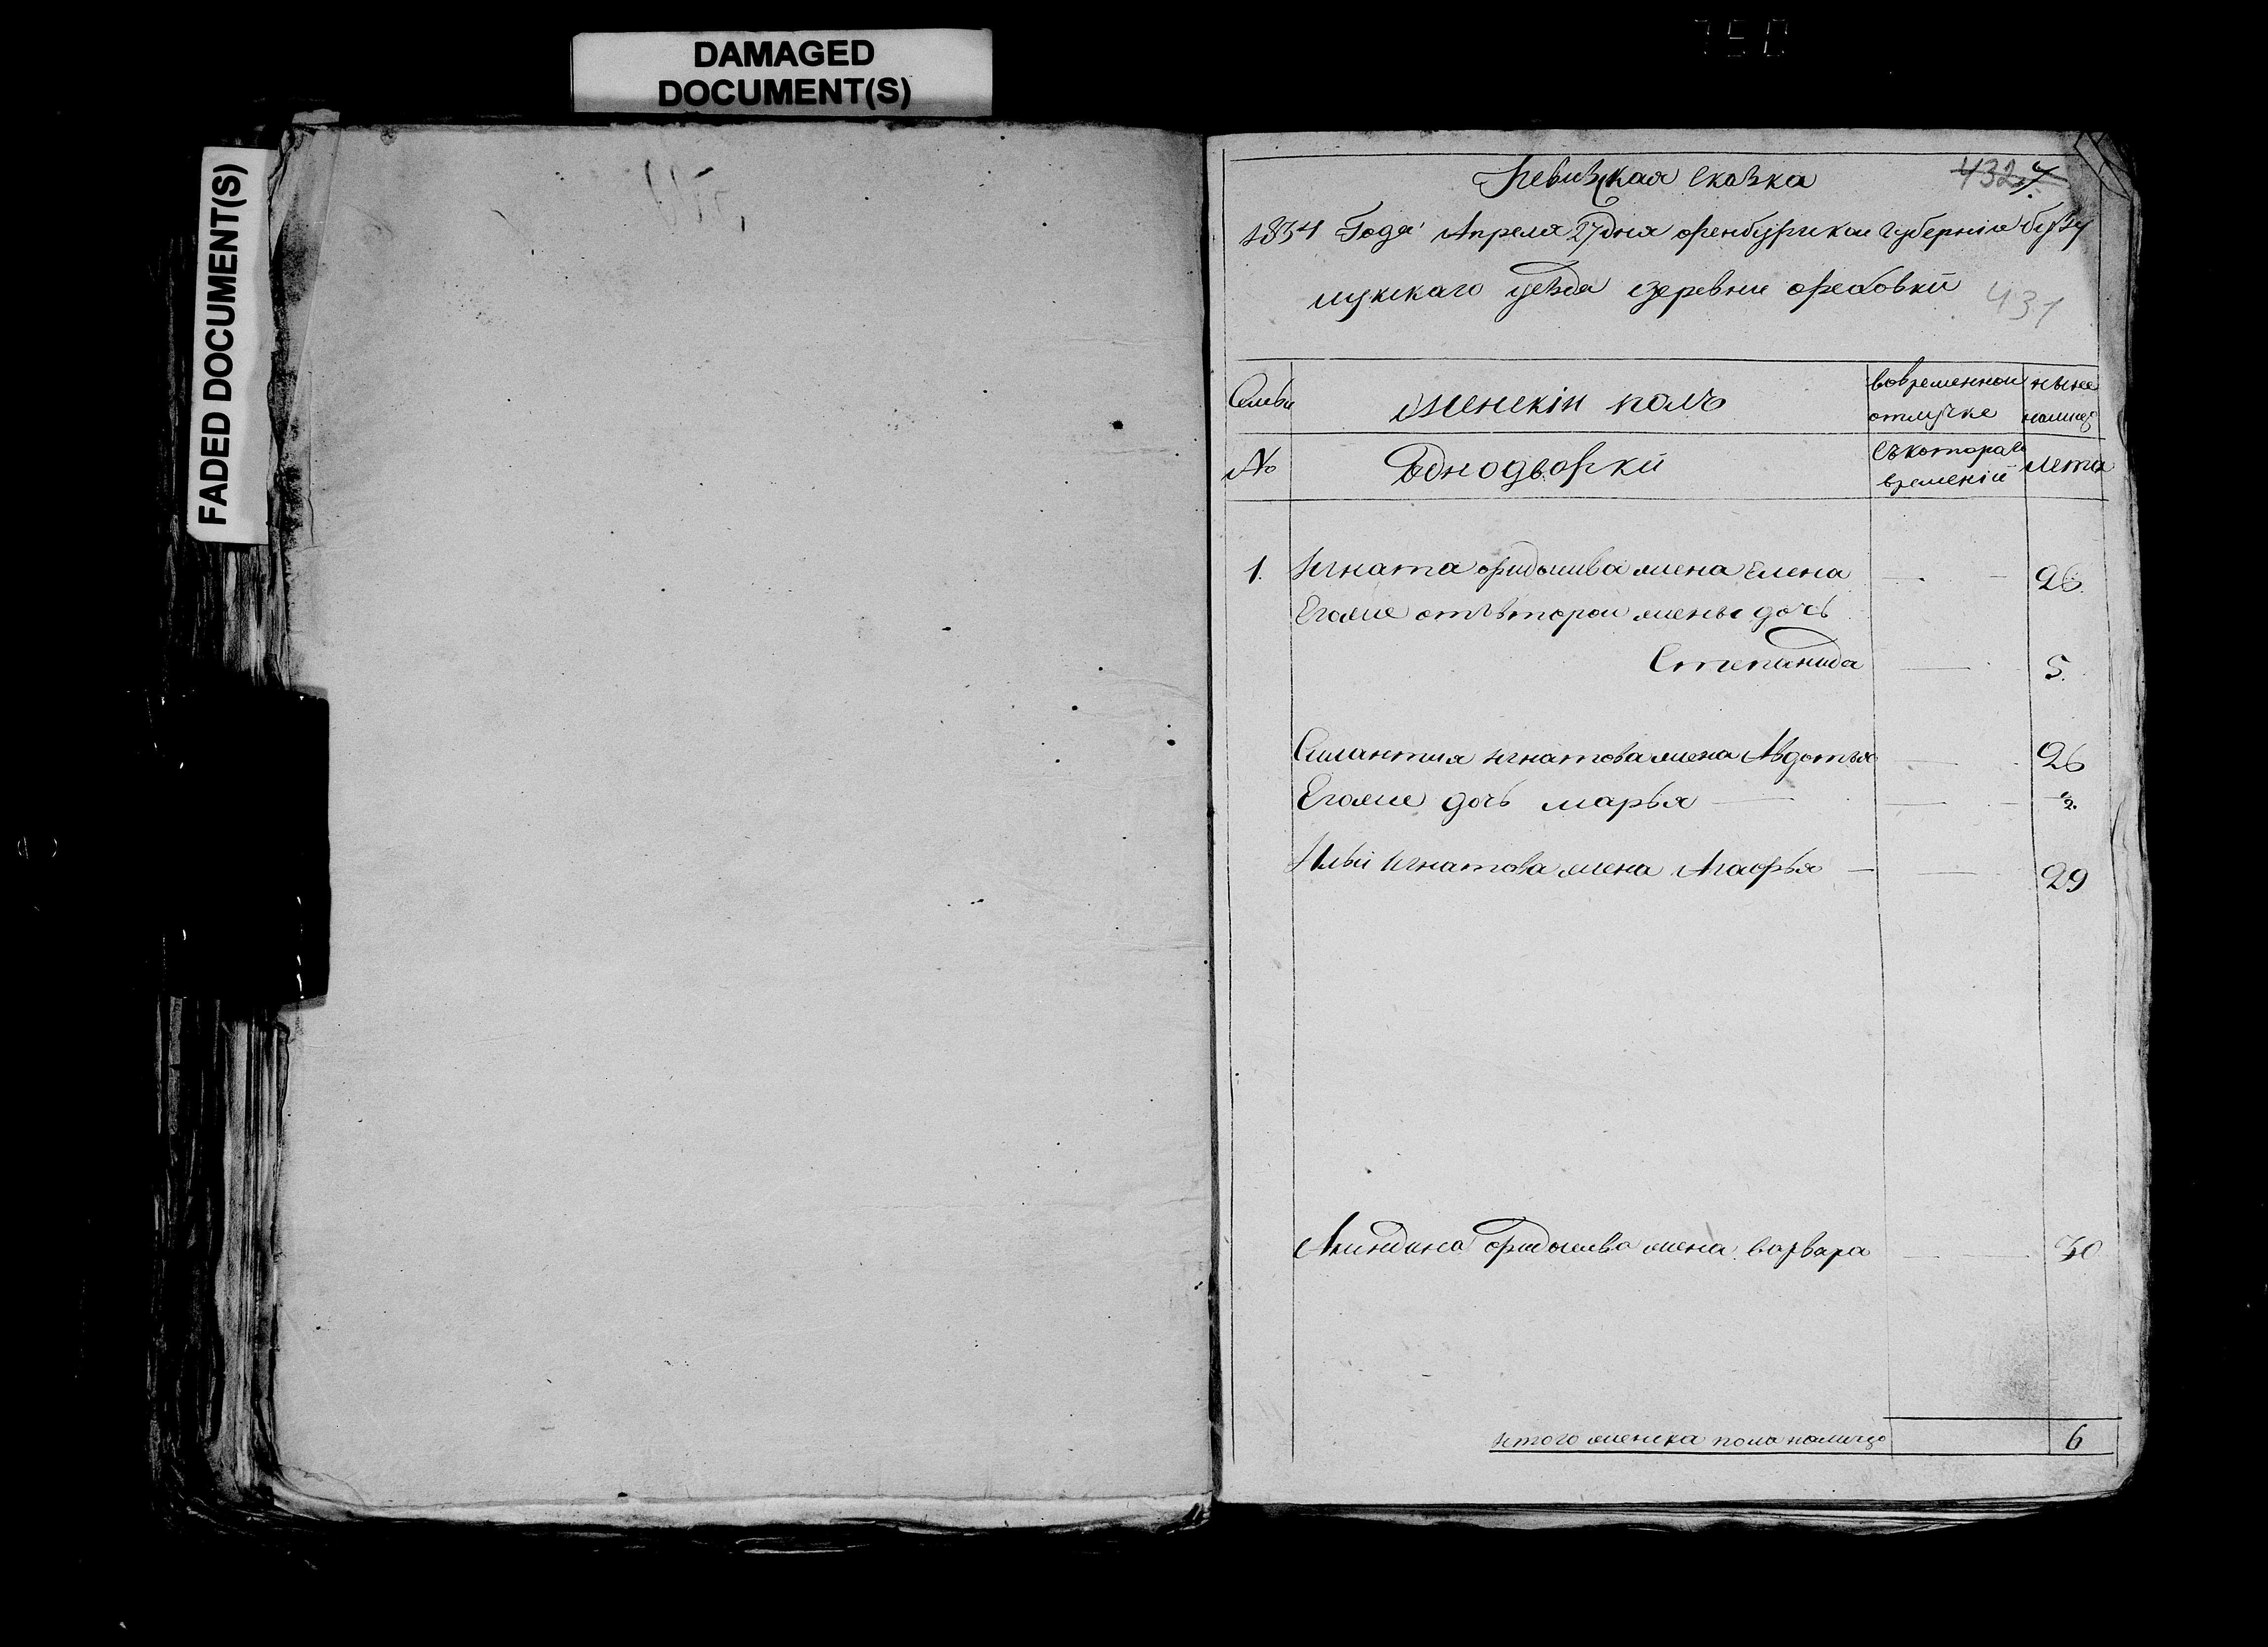 DAMAGED
DOCUMENT(S)
FADED DOCUMENT(S)
Ревизкая сказка
432
1834 Года Апреля 27 дня оренбургкои губерніи бузу
лукскаго уезда деревни
431
Семьи
женскін полъ
вовременнои
отлучке
ныне
налицо
№
Однодворки
Съкотораго
временіи
лета
1. Игната жена Елена 26
Егоже отвторои жены дочь
Степанида 5.
Силантия игнатова жена Авдотья 26
Егоже дочь марья 1/2.
Ильи Игнатова жена Агафья 29
жена варвара 30
итого женска пола налицо 6